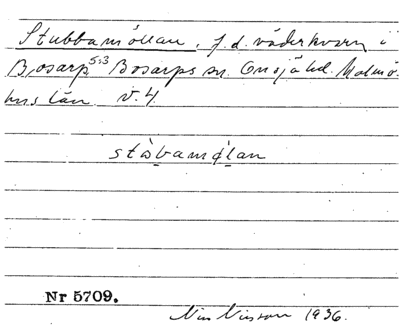 Stubbamöllan, f.d. väderkvarn i
Bosarp 5:3 Bosarps sn. Onsjö hd. Malmö-
hus län. v. 4.
stå̀bamø̀lan
Nr 5709.
Nils Nilsson 1936.